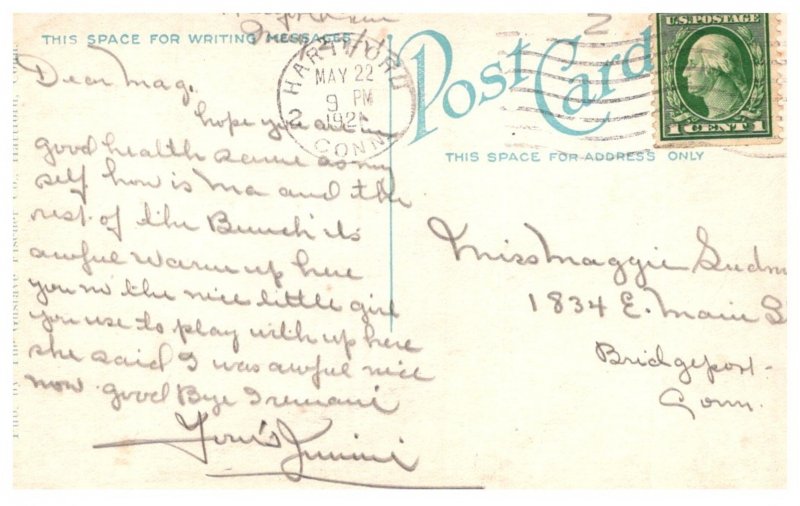 THIS SPACE FOR WRITING MESSAGES
Post Card
HARTFORD
MAY 22
9 PM
192
CONN.
2
U.S. POSTAGE
1 CENT 1
THIS SPACE FOR ADDRESS ONLY
Dear Mag.
hope you are in
good health same as my
self how is Ma and the
rest of the Bunch its
awful warm up here
you no the nice little girl
you use to play with up here
she said I was awful nice
now good Bye I remani
Your's
Miss Maggie
1834 E. Main
Bridgeport
Conn.